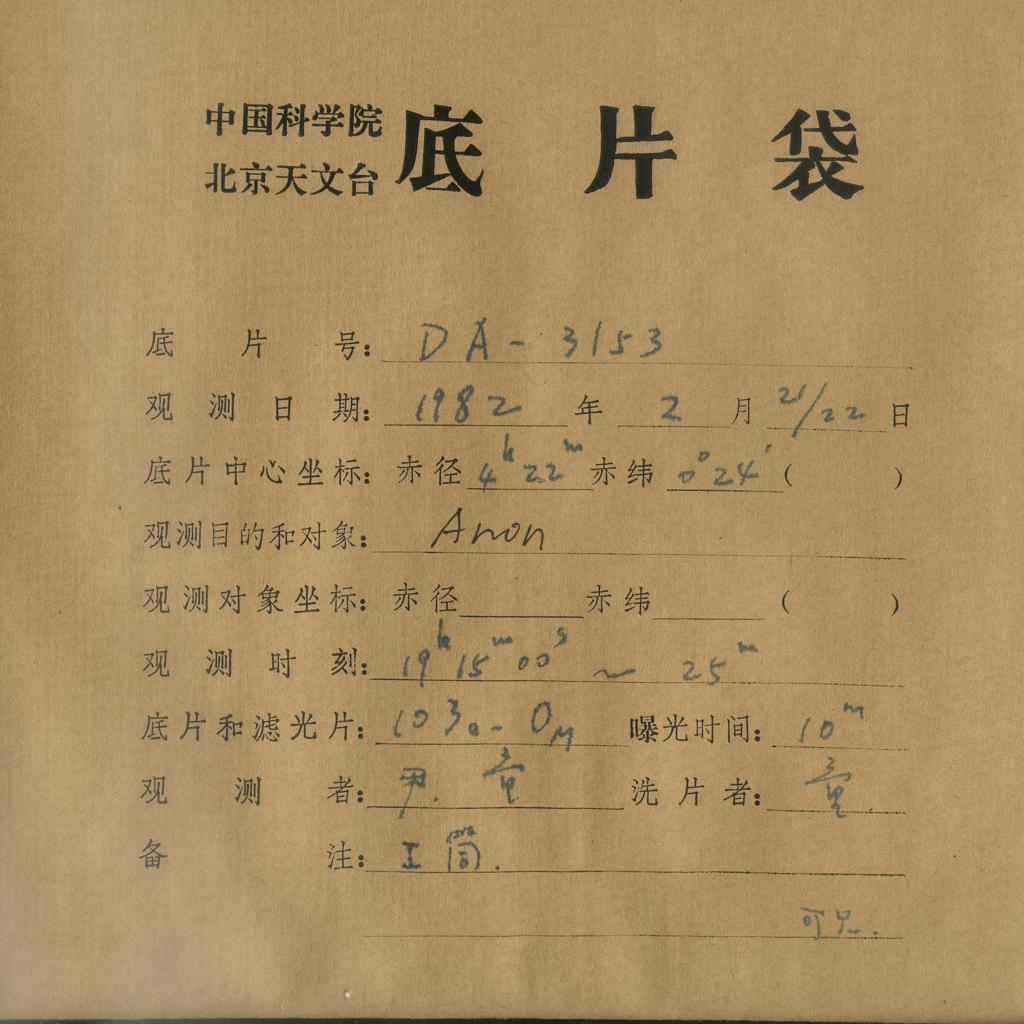 中国科学院
北京天文台
底片袋
底片号：DA-3153
观测日期：1982年2月21/22日
底片中心坐标：赤径4h22m赤纬0°24′（ ）
观测目的和对象：Anon
观测对象坐标：赤径 赤纬 （ ）
观测时刻：19h15m00s ~ 25m
底片和滤光片：103a-O 曝光时间：10m
观测者：尹. 童 洗片者：童.
备注：正筒.